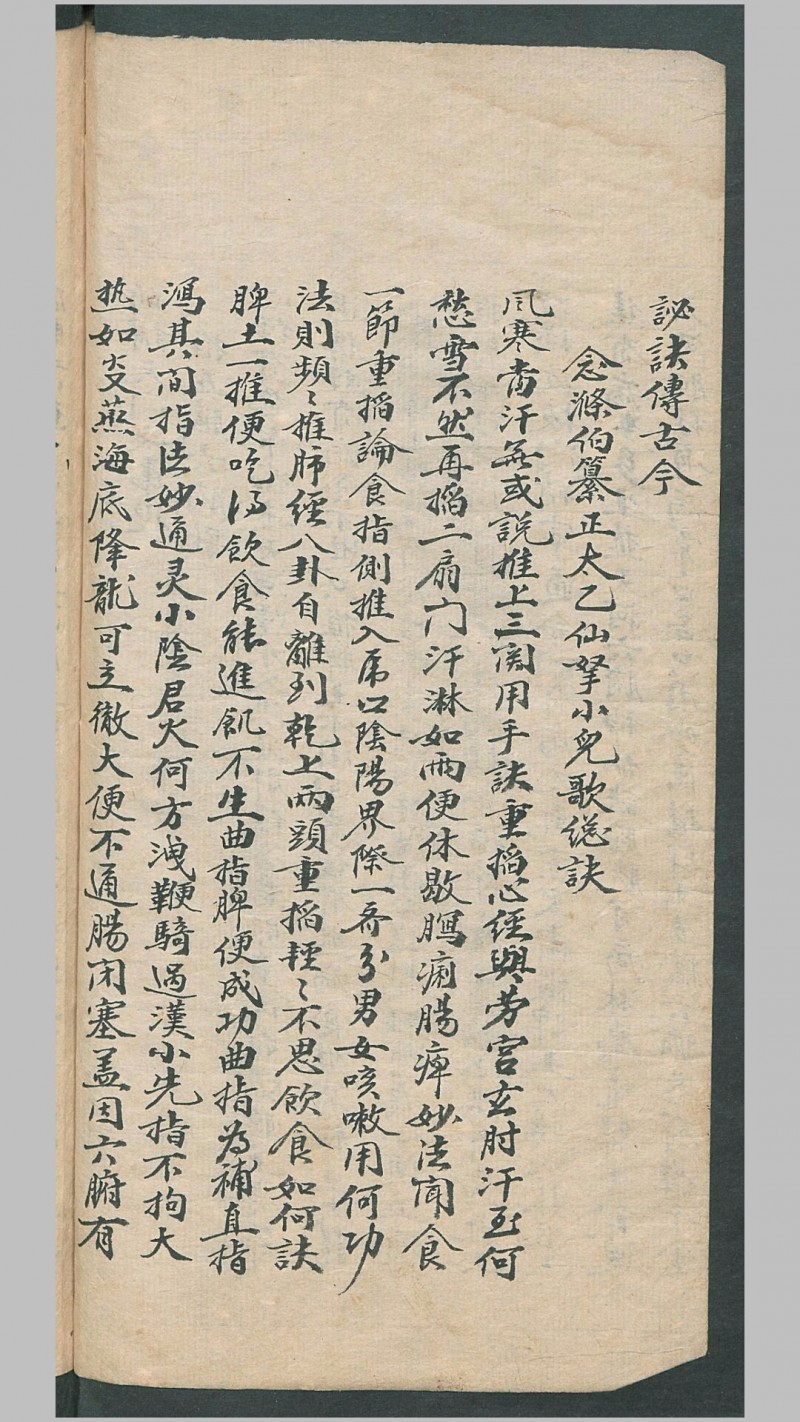 訣傳古今
念滌伯纂正太乙仙拏小兒歌總訣
風寒無或說推上三關用手訣重搯心經與勞宮玄肘汗至何
愁雪不然再搯二扇门汗淋如雨便休歇瀉痢腸痺妙法闻食
一節重搯論食指側推入虎口陰陽界際一齐分男女咳嗽用何功
法則頻〻推肺經八卦自離到乾上兩頭重搯輕〻不思飲食如何訣
脾土一推便吃汤飲食能進飢不生曲指脾便成功曲指为補直指
瀉其间指法妙通灵小陰君火何方洩鞭騎過漢小先指不拘大
热如炎蒸海底降龍可立徹大便不通腸闭塞盖因六腑有